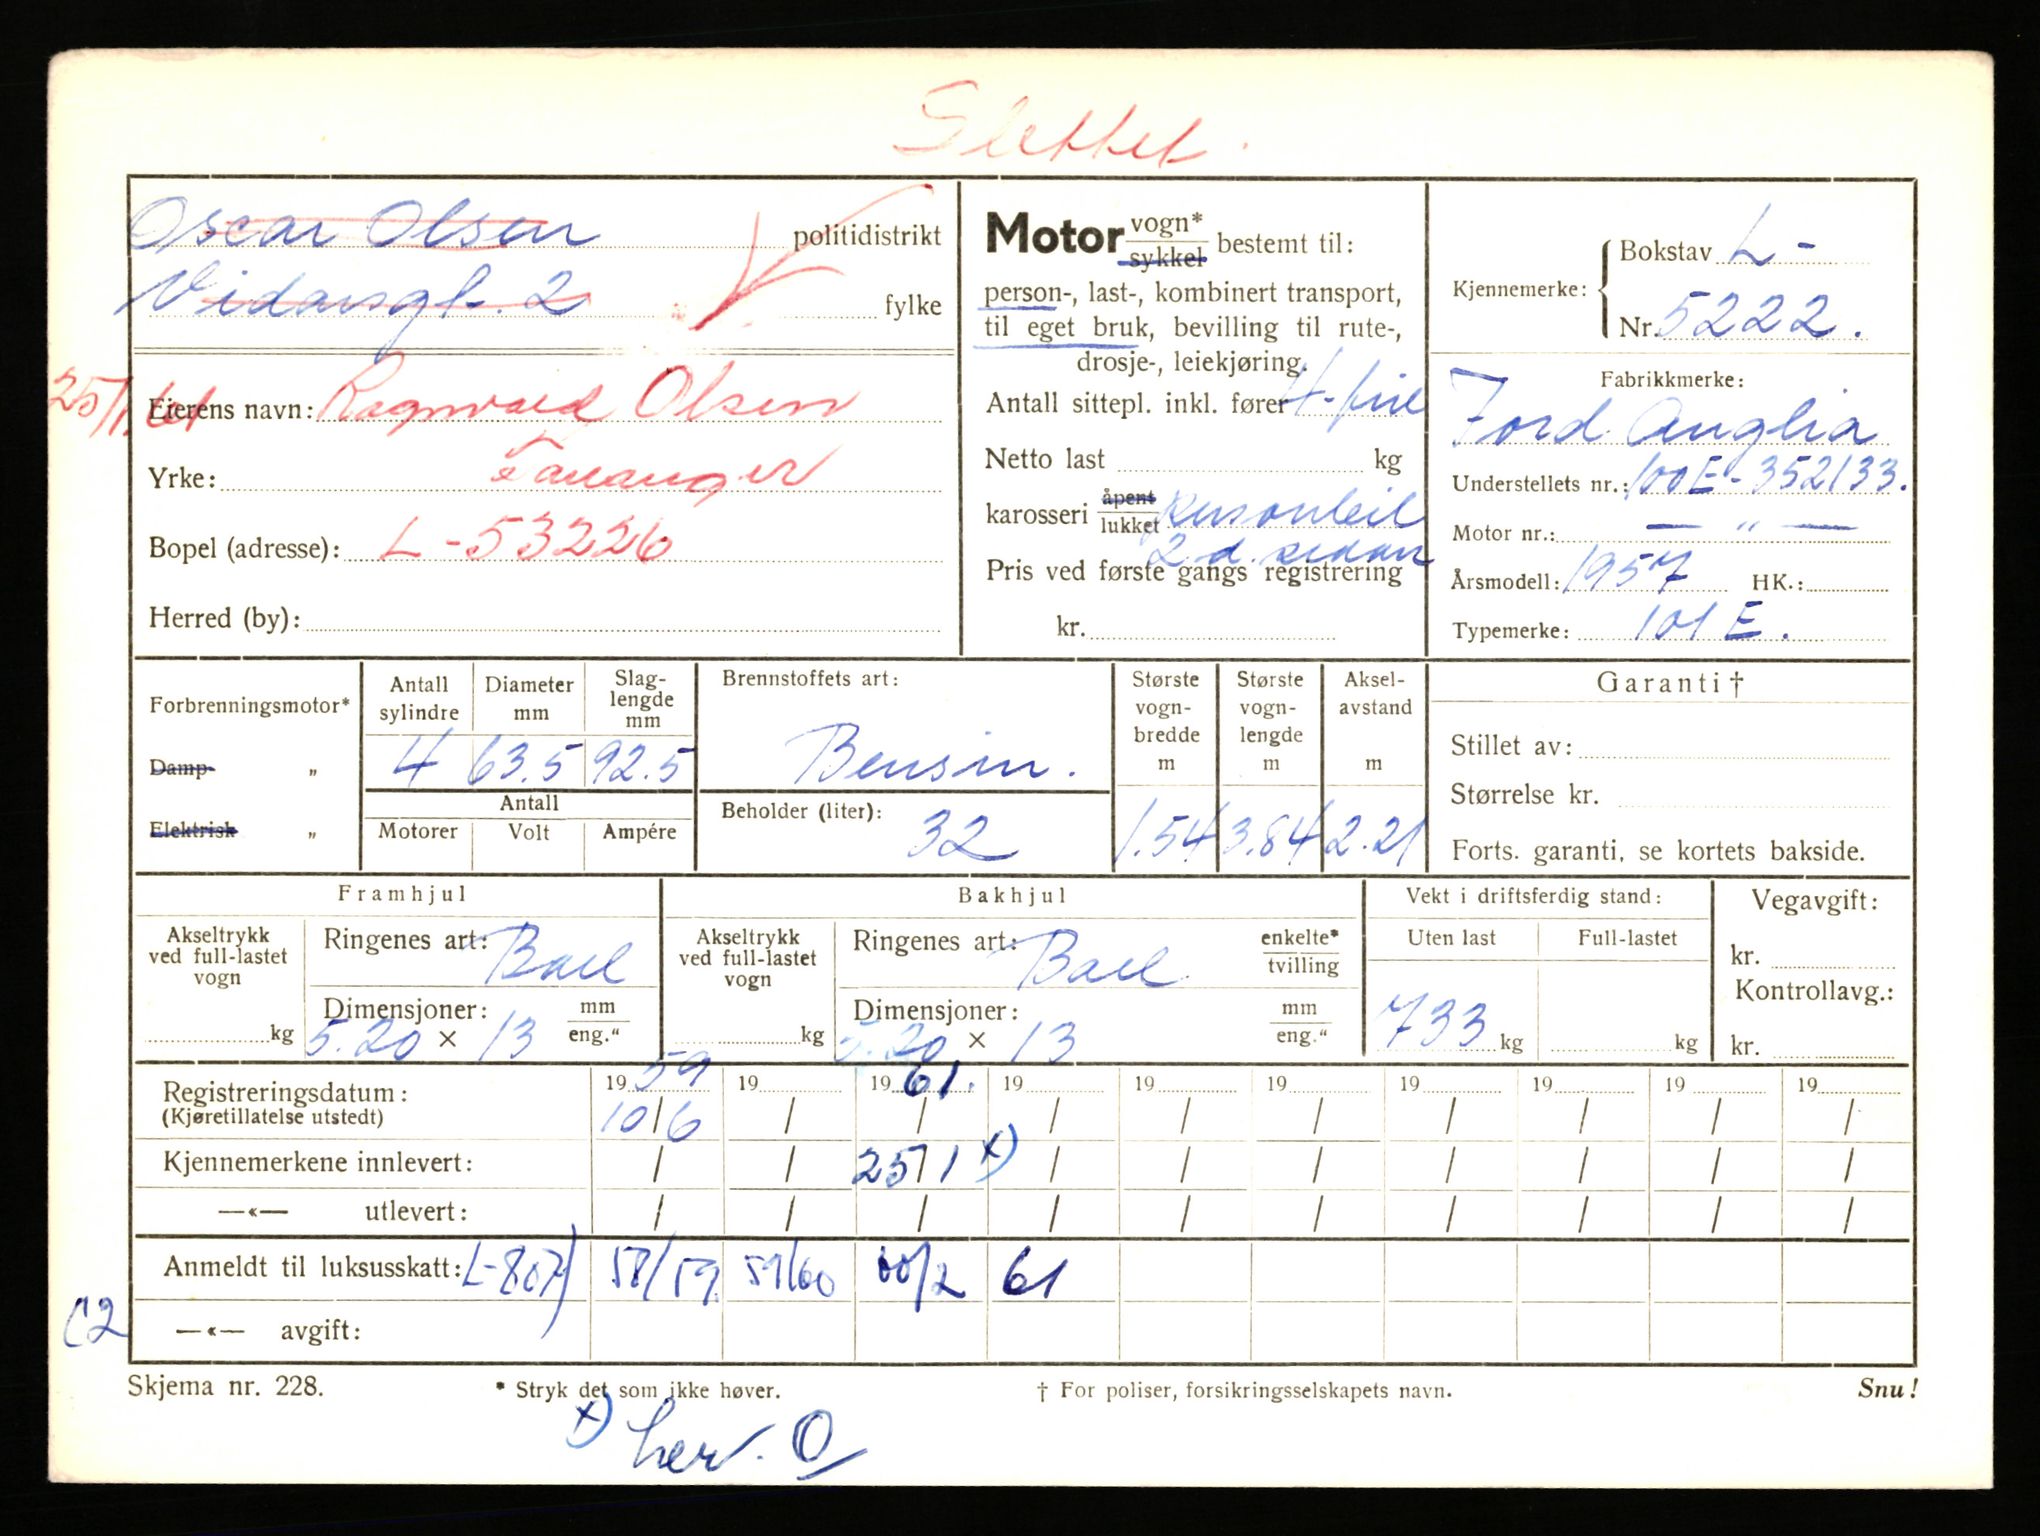 Slettet.
Oscar Olsen politidistrikt
Vidarsgt. 2 fylke
25/1.61 Eierens navn: Ragnvald Olsen
Yrke: Tananger
Bopel (adresse): L-53226
Herred (by):
Motor vogn* sykkel bestemt til:
person-, last-, kombinert transport,
til eget bruk, bevilling til rute-,
drosje-, leiekjøring.
Antall sittepl. inkl. fører 4-fire
Netto last kg
karosseri åpent lukket Personbil
2 d. sedan
Pris ved første gangs registrering
kr.
Kjennemerke: { Bokstav L-
Nr. 5222.
Fabrikkmerke:
Ford Anglia
Understellets nr.: 100E-352133.
Motor nr.: — " —
Årsmodell: 1957 HK.:
Typemerke: 101 E.
Forbrenningsmotor*
Damp- „
Elektrisk „
Antall sylindre Diameter mm Slag-lengde mm
4 63.5 92.5
Antall
Motorer Volt Ampére
Brennstoffets art:
Bensin.
Beholder (liter):
32
Største vogn-bredde m Største vogn-lengde m Aksel-avstand m
1.54 3.84 2.21
Garanti †
Stillet av:
Størrelse kr.
Forts. garanti, se kortets bakside.
Framhjul
Akseltrykk ved full-lastet vogn
kg
Ringenes art: Ball
Dimensjoner: mm
5.20 × 13 eng."
Bakhjul
Akseltrykk ved full-lastet vogn
kg
Ringenes art: Ball enkelte* tvilling
Dimensjoner: mm
5.20 × 13 eng."
Vekt i driftsferdig stand:
Uten last Full-lastet
733 kg kg
Vegavgift:
kr.
Kontrollavg.:
kr.
Registreringsdatum: 19 59 19 19 61. 19 19 19 19 19 19 19
(Kjøretillatelse utstedt) 10/6 / / / / / / / / /
Kjennemerkene innlevert: / / 25/1 x) / / / / / / /
—«— utlevert: / / / / / / / / / /
Anmeldt til luksusskatt: L-807) 58/59. 59/60 60/2 61
(2 —«— avgift:
Skjema nr. 228. * Stryk det som ikke høver. † For poliser, forsikringsselskapets navn. Snu!
x) her. O